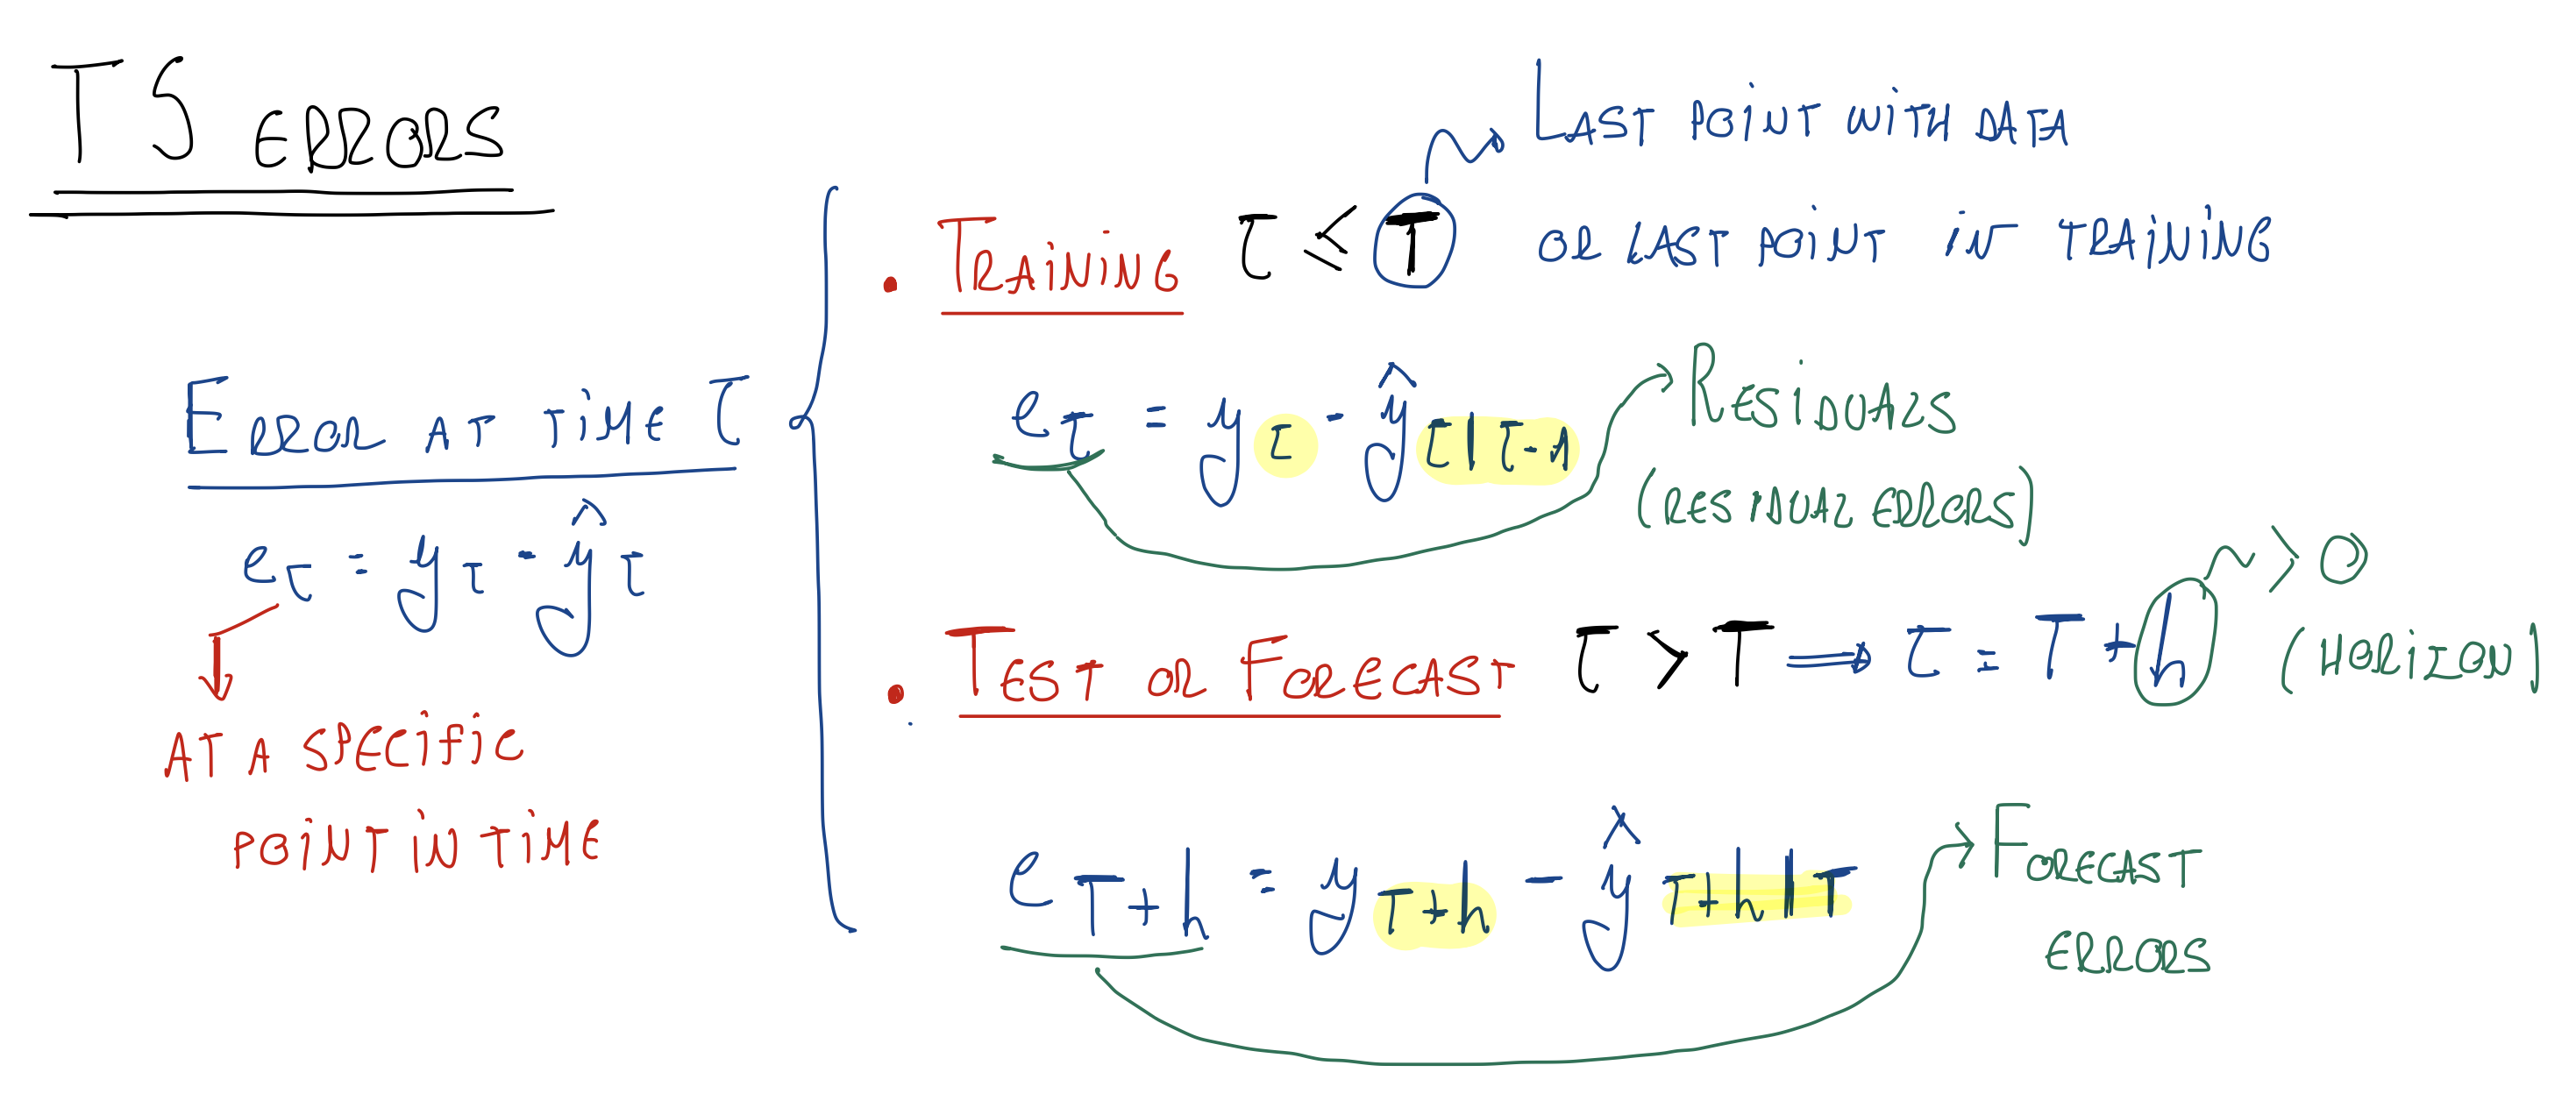 TS ERRORS
ERROR AT TIME τ
e_τ = y_τ - ŷ_τ
AT A SPECIFIC
POINT IN TIME
• TRAINING τ ≤ T
LAST POINT WITH DATA
OR LAST POINT IN TRAINING
e_τ = y_τ - ŷ_τ|τ-1
RESIDUALS
(RESIDUAL ERRORS)
• TEST OR FORECAST τ > T ⟹ τ = T + h
> 0
(HORIZON)
e_T+h = y_T+h - ŷ_T+h|T
FORECAST
ERRORS